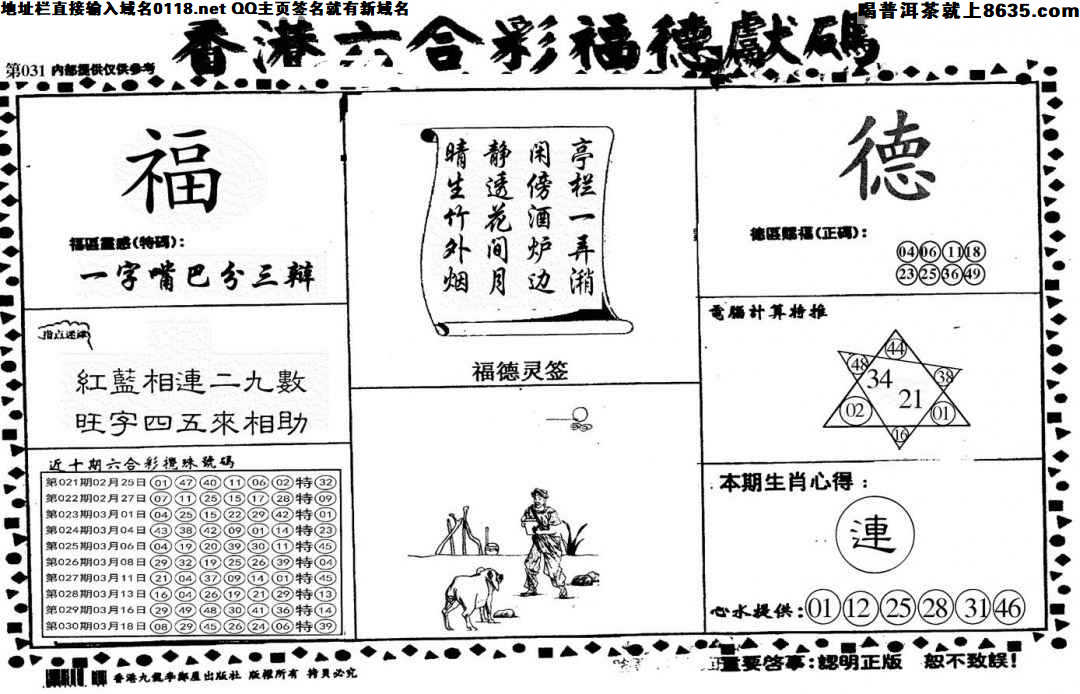 地址栏直接输入域名0118.net QQ主页签名就有新域名
喝普洱茶就上8635.com
香港六合彩福德獻碼
第031 内部提供仅供参考
福
福區靈感(特碼):
一字嘴巴分三辩
指点迷津
紅藍相連二九數
旺字四五來相助
近十期六合彩攪珠號碼
第021期02月25日 01 47 40 11 06 02 特 32
第022期02月27日 07 11 25 15 17 28 特 09
第023期03月01日 04 25 15 22 29 42 特 01
第024期03月04日 43 38 42 09 01 14 特 23
第025期03月06日 04 19 20 39 30 11 特 45
第026期03月08日 29 32 19 25 26 39 特 04
第027期03月11日 21 04 37 09 14 01 特 45
第028期03月13日 16 04 26 19 21 29 特 13
第029期03月16日 29 49 48 30 41 36 特 14
第030期03月18日 08 29 45 26 24 06 特 39
亭栏一弄潲
闲傍酒炉边
静透花间月
晴生竹外烟
福德灵签
德
德區賜福(正碼):
04 06 11 18
23 25 36 49
電腦計算特推
44
48 38
34 21
02 01
16
本期生肖心得:
連
心水提供: 01 12 25 28 31 46
香港九龍李鄭屋出版社 版權所有 拷貝必究
重要啓事:認明正版 恕不致誤!